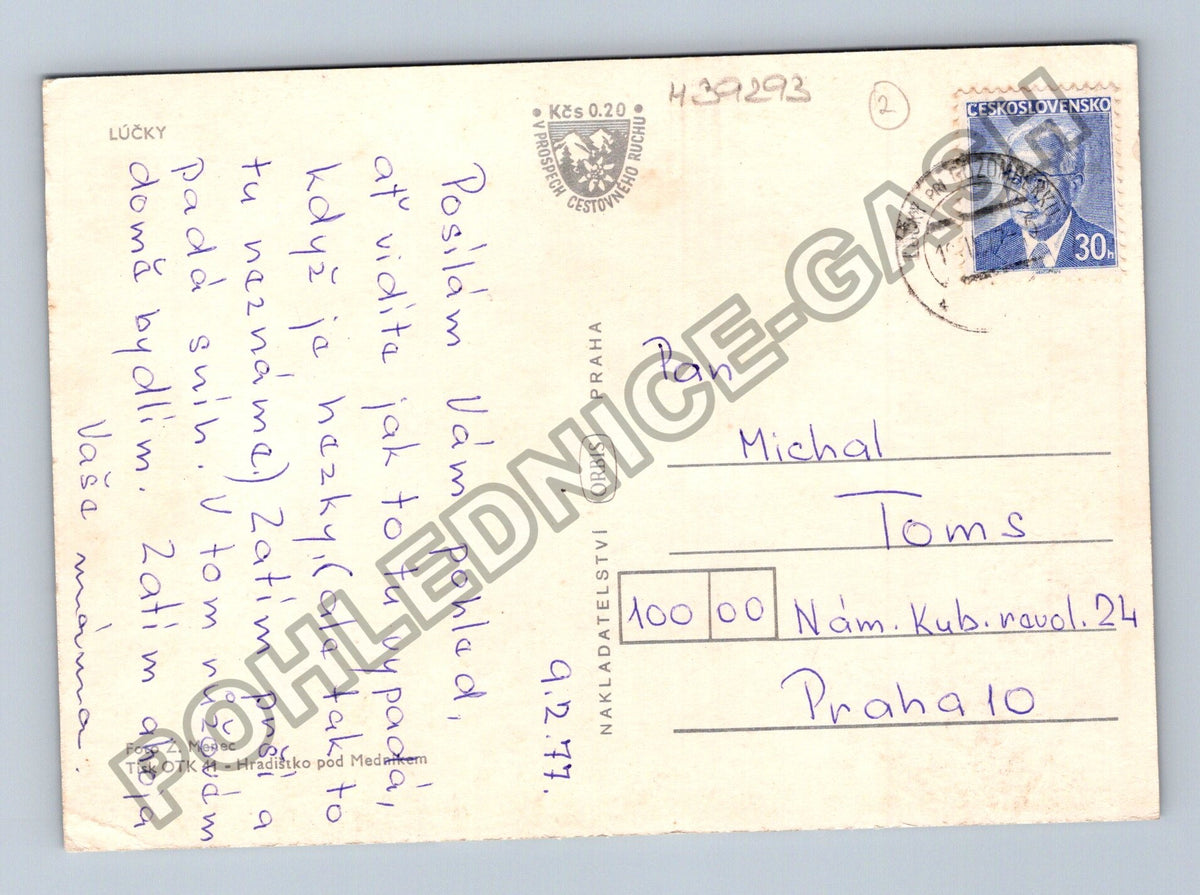 LÚČKY
• Kčs 0.20 •
V PROSPĚCH CESTOVNÉHO RUCHU
H39293
2
ČESKOSLOVENSKO
30h
9.12.77.
Posílám Vám pohled,
ať vidíte jak to tu vypadá,
když je hezky, (ale tak to
tu neznáme.) Zatím prší a
padá sníh. V tom růžovém
domě bydlím. Zatím ahoj
Vaše máma.
Foto Z. Menec
Tisk OTK 41 - Hradištko pod Medníkem
NAKLADATELSTVÍ ORBIS PRAHA
Pan
Michal
Toms
100 00 Nám. Kub. revol. 24
Praha 10
POHLEDNICE-GASH